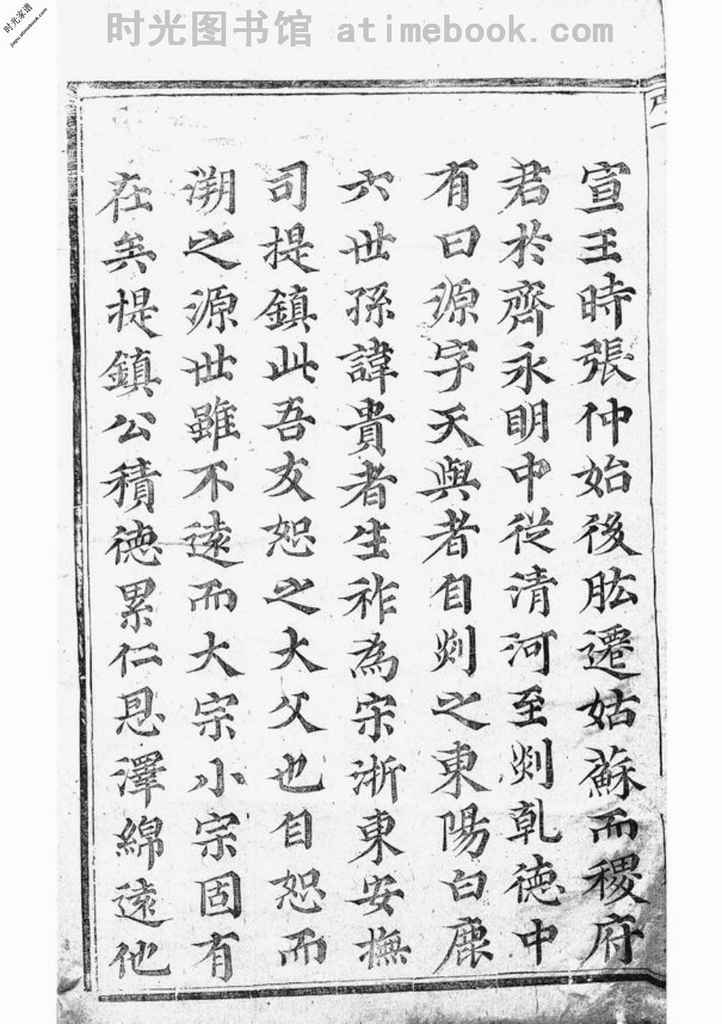 时光图书馆 atimebook.com
时光家谱
宣王時張仲始後肱遷姑蘇而稷府
君於齊永明中從清河至剡乹德中
有曰源字天與者自剡之東陽白鹿
六世孫諱貴者生祚為宋浙東安撫
司提鎮此吾友恕之大父也自恕而
溯之源世雖不遠而大宗小宗固有
在矣提鎮公積德累仁恩澤綿遠他